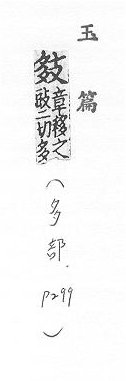 玉篇
章移之
豉二切多
(多部.P299)